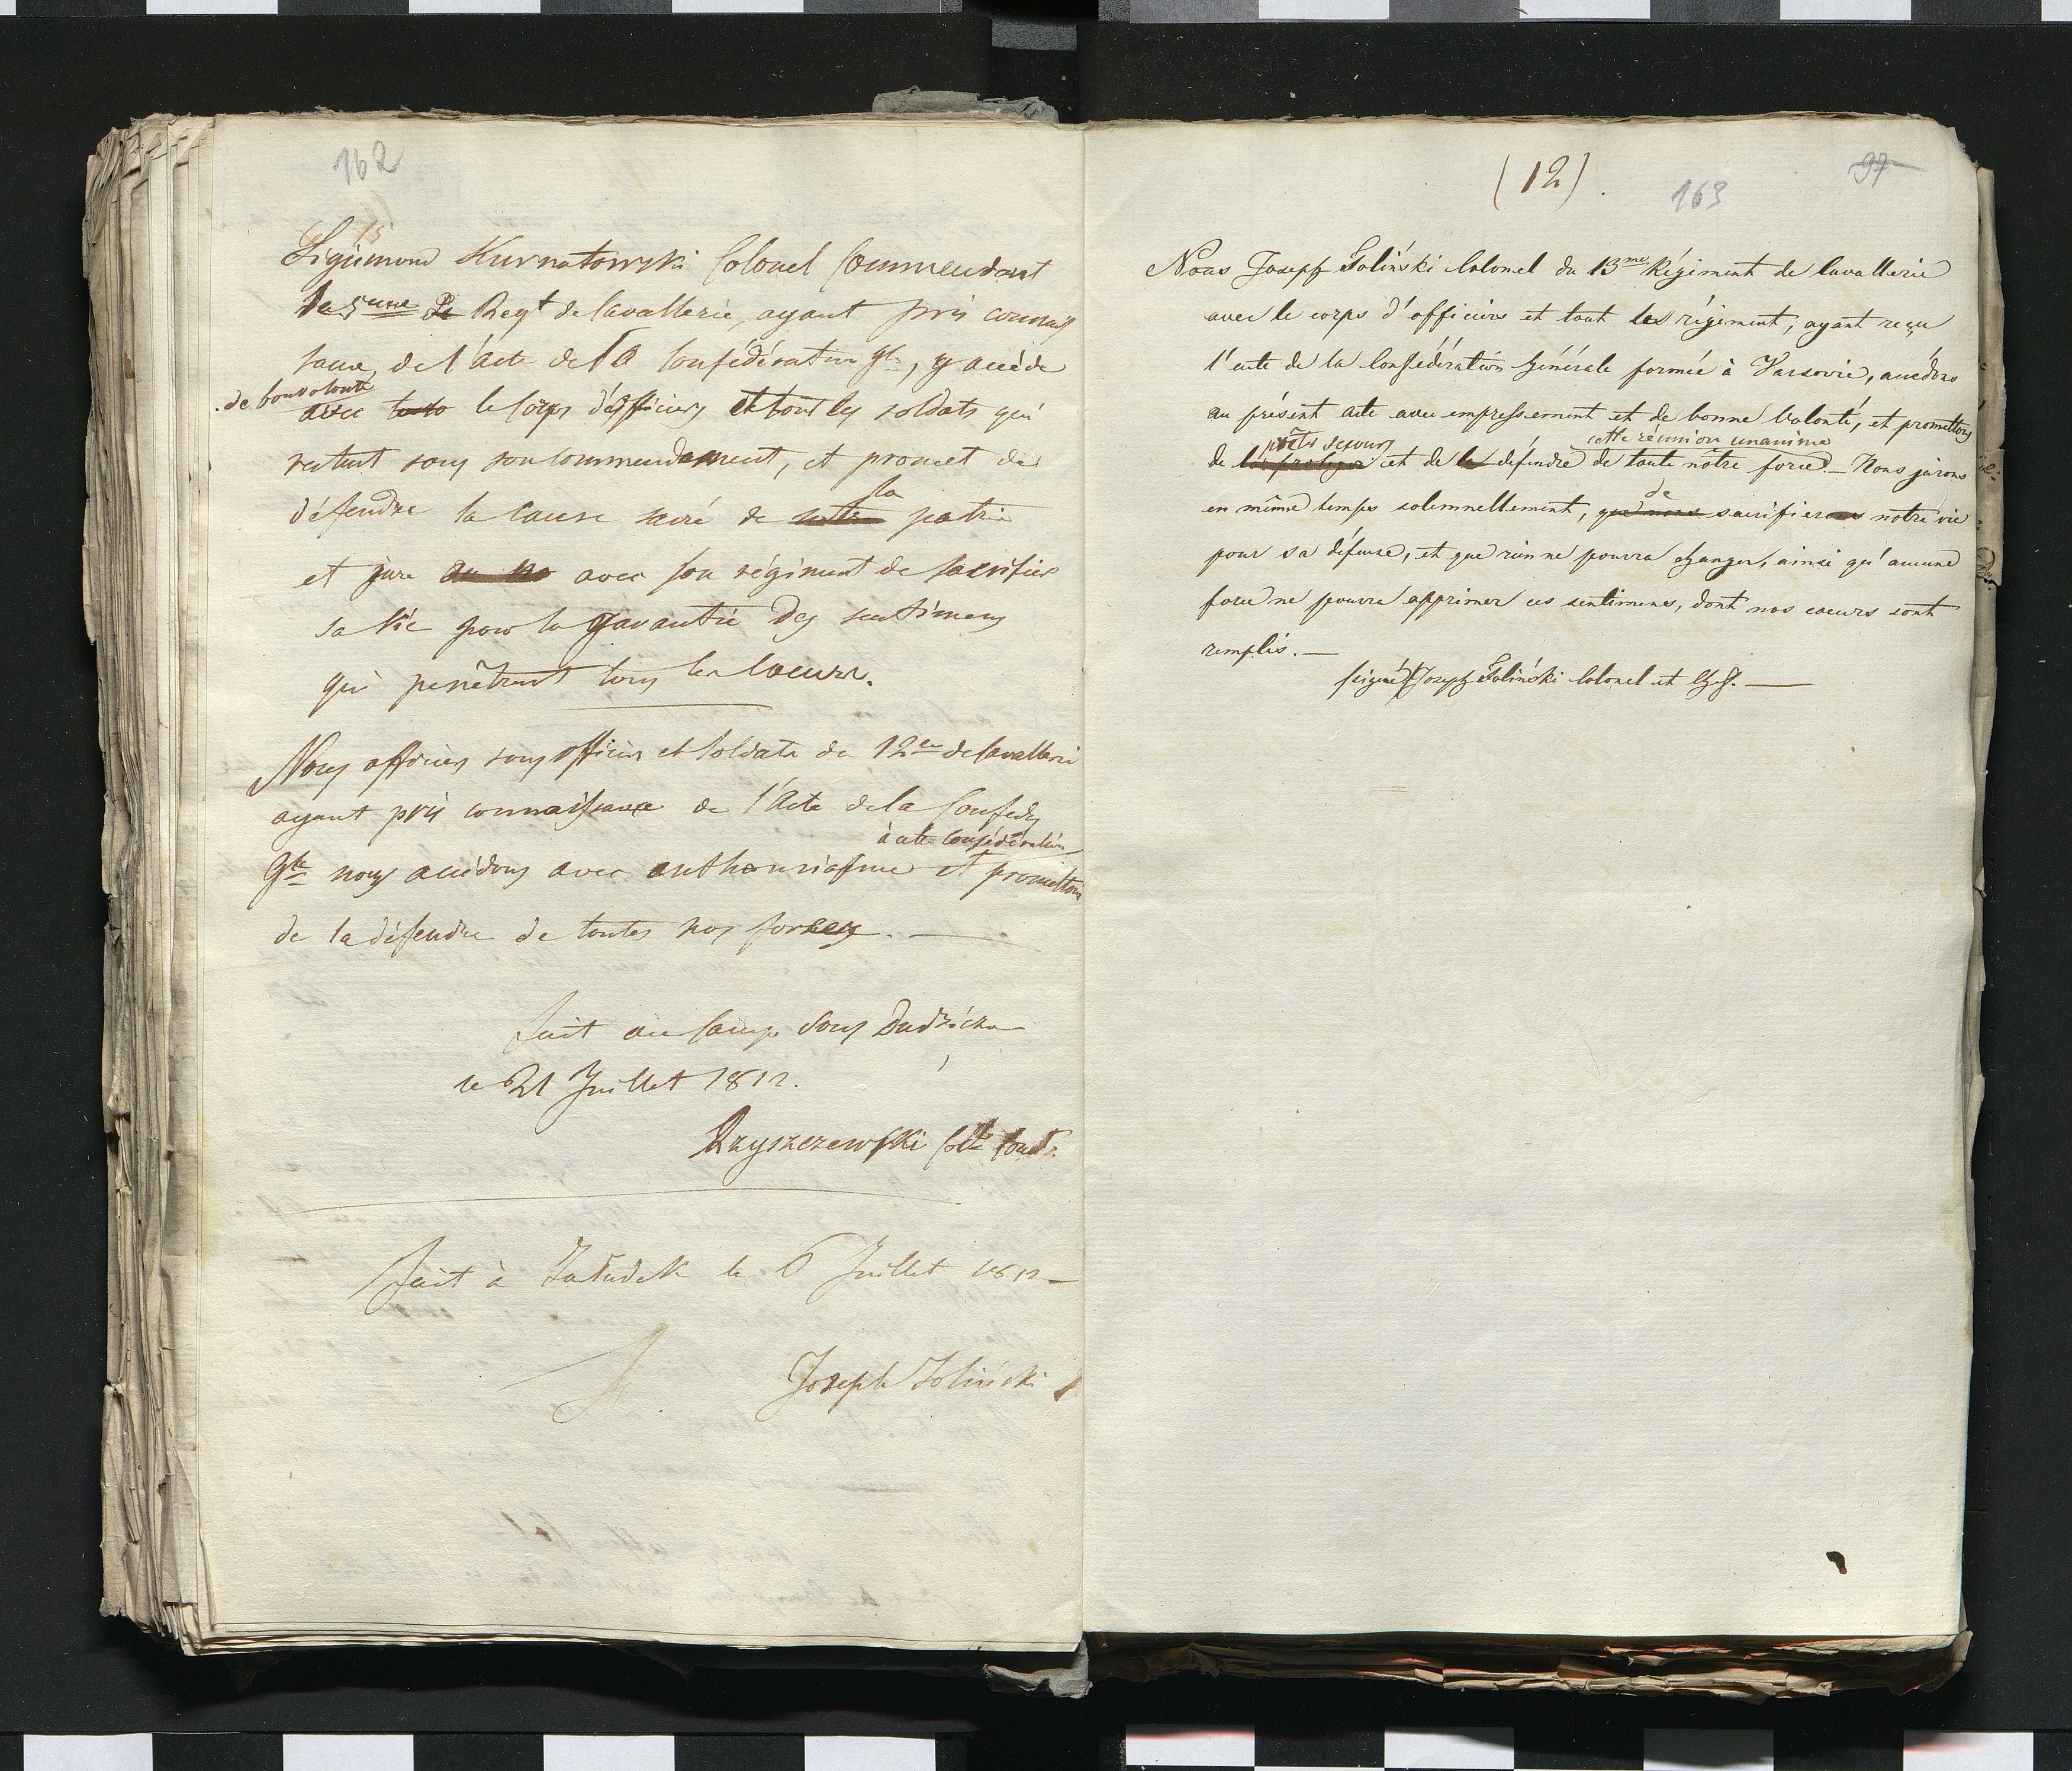 162
15
Sigismond Kurnatowski Colonel Commendant
du 5eme De Regt de Cavallerie, ayant pris connais
sance, de l'acte de la Confédération gle, y accéde
de bon volonté
avec tout le corps d'officiers et tout les soldats qui
restent sous son commendement, et promet de
la
défendre la cause sacré de notre patrie
et jure avec son régiment de sacrifier
sa vie pour la garantie des sentimens
qui penêtrent tous les coeurs.
Nous officiers sous officier et soldats du 12e de Cavallerie
ayant pris connaissance de l'Acte de la Confedn
à cette Confédération
gle nous accédons avec enthousiasme et promettons
de la défendre de toutes nos forces. —
Fait au Camp sous Dudzicze
le 21 Juillet 1812.
Rzyszczewski Coll Comdt.
Fait à Zaludek le 6 Juillet 1812 —
Joseph Toliński
(12).
163
97
Nous Joseph Toliński Colonel du 13me Régiment de Cavallerie
avec le corps d'officiers et tout les régiment, ayant reçu
l'acte de la Confédération Générale formée à Varsovie, accédons
au présent acte avec empressement et de bonne volonté, et promettons
prêter secours cette réunion unanime
de la proteger et de la défendre de toute nôtre force. — Nous jurons
de
en même temps solemnellement, que nous sacrifierons notre vie
pour sa défense, et que rien ne pourra changer, ainsi qu'aucune
force ne pourra opprimer ces sentimens, dont nos coeurs sont
remplis. —
seigné Joseph Toliński Colonel et Chef. —